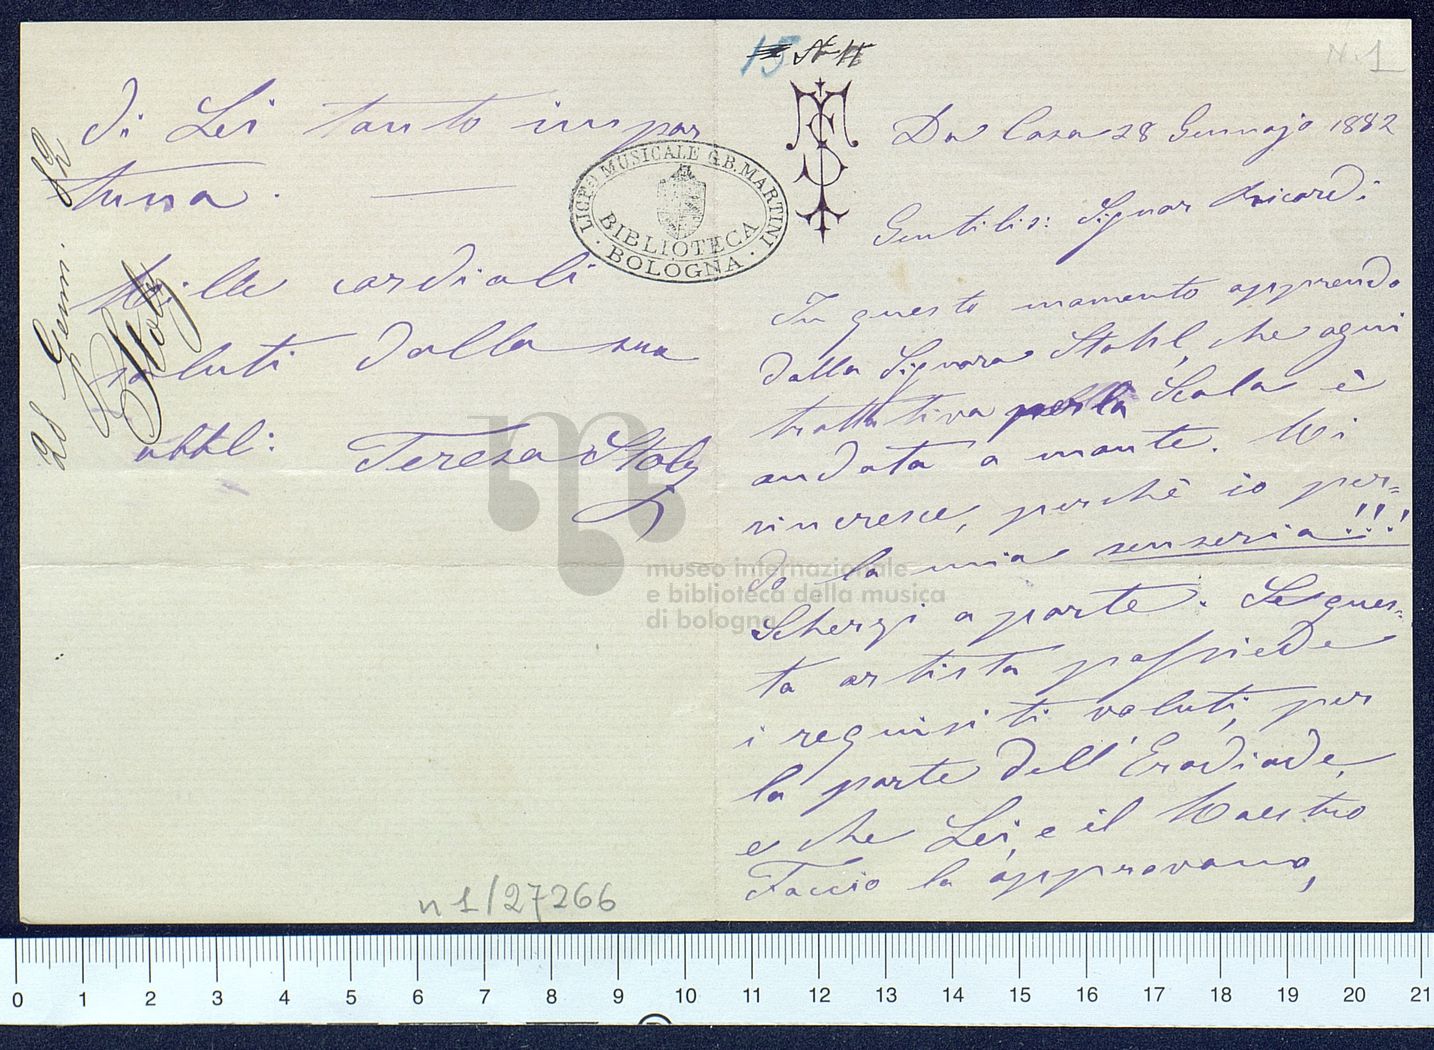 15 N. 11
N. 1
Da Casa 28 Gennajo 1882
Gentilis: Signor Ricordi
In questo momento apprendo
dalla Signora Stahl, che ogni
trattativa per la Scala è
andata a monte. Mi
rincresce, perchè io per=
do la mia senseria!!!
Scherzi a parte. Se ques=
ta artista possiede
i requisiti voluti, per
la parte dell'Erodiade,
e che Lei, e il Maestro
Faccio la approvano,
di Lei tanto impor
tuna.
Mille cordiali
saluti dalla sua
obbl: Teresa Stolz
28 Genn. 82
Stolz
LICEO MUSICALE G.B. MARTINI
BIBLIOTECA
BOLOGNA
museo internazionale
e biblioteca della musica
di bologna
n 1/27266
0 1 2 3 4 5 6 7 8 9 10 11 12 13 14 15 16 17 18 19 20 21